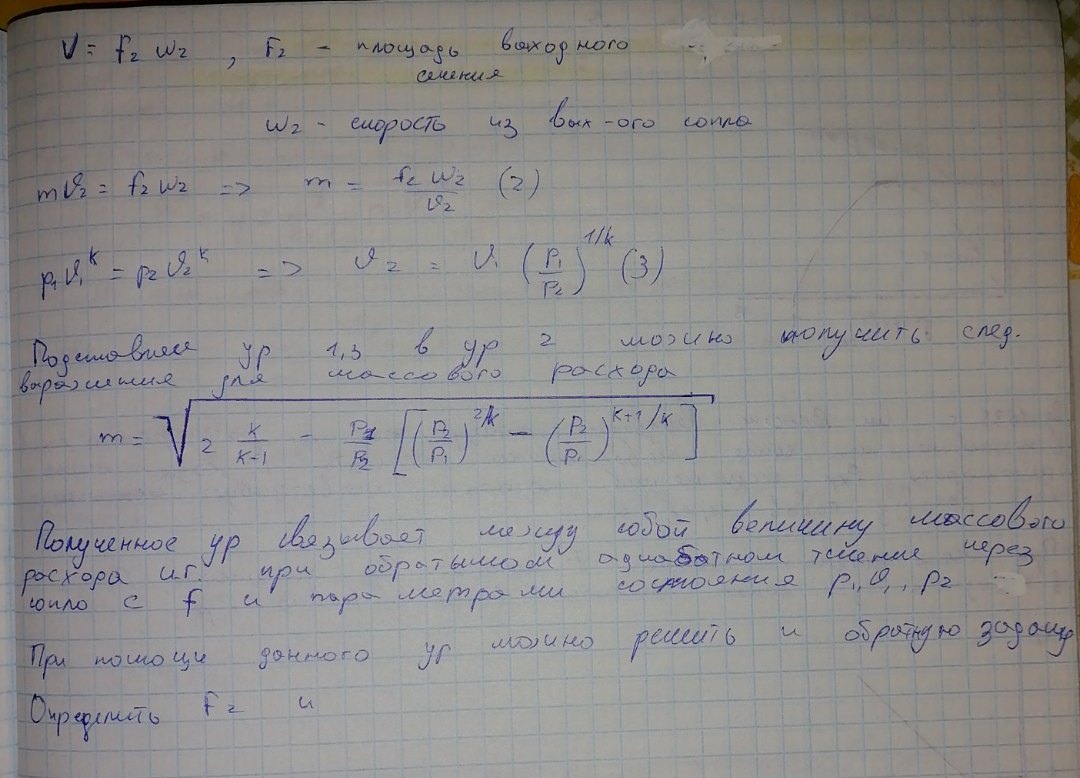 V = f₂ w₂ , F₂ - площадь выходного
сечения
w₂ - скорость из вых-ого сопла
m ϑ₂ = f₂ w₂ => m = f₂ w₂ / ϑ₂ (2)
p₁ ϑ₁^k = p₂ ϑ₂^k => ϑ₂ = ϑ₁ (p₁/p₂)^1/k (3)
ур 1,3 в ур 2 можно получить след.
выражения для массового расхода
m = √(2 k/(k-1) - p₁/p₂ [(p₂/p₁)^2/k - (p₂/p₁)^k+1/k])
Полученное ур связывает между собой величину массового
расхода и.г. при обратимом адиабатном течение через
сопло с f и параметрами состояния p₁, ϑ₁, p₂
При помощи данного ур можно решить и обратную задачу
Определить F₂ и